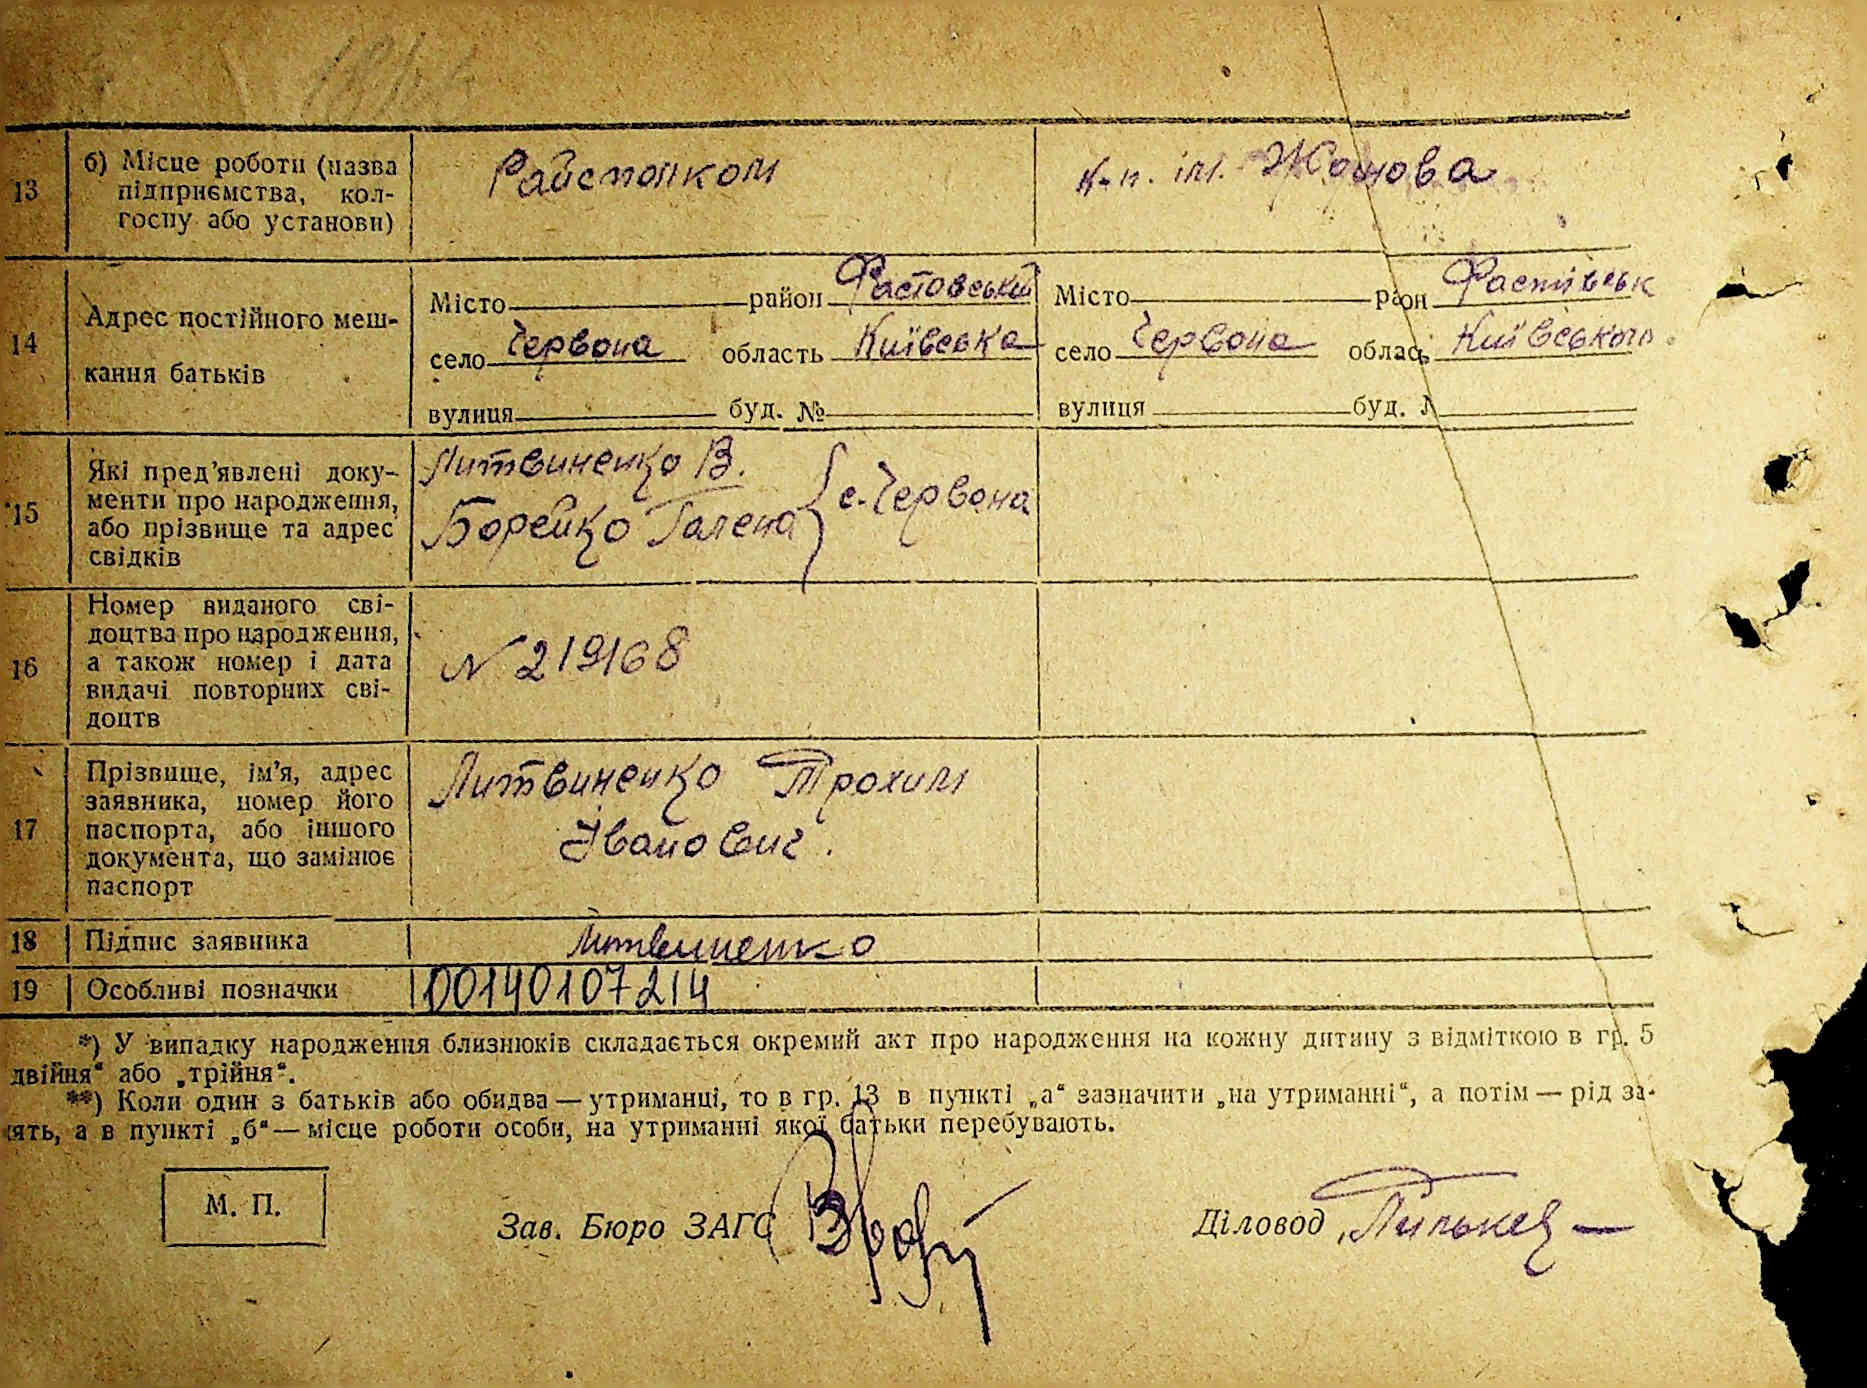 13 б) Місце роботи (назва підприємства, колгоспу або установи)
к-п. ім.
14 Адрес постійного мешкання батьків
Місто район Фастовський
село Червона область Київська
вулиця буд. №
Місто район Фастівськ
село Червона облась Київського
вулиця буд. №
15 Які пред'явлені документи про народження, або прізвище та адрес свідків
Литвиненко В.
Борейко Галена с. Червона
16 Номер виданого свідоцтва про народження, а також номер і дата видачі повторних свідоцтв
N 219168
17 Прізвище, ім'я, адрес заявника, номер його паспорта, або іншого документа, що замінює паспорт
Литвиненко Трохим
Іванович.
18 Підпис заявника Литвиненко
19 Особливі позначки 00140107214
*) У випадку народження близнюків складається окремий акт про народження на кожну дитину з відміткою в гр. 5
двійня" або „трійня".
**) Коли один з батьків або обидва — утриманці, то в гр. 13 в пункті „а" зазначити „на утриманні", а потім — рід за-
нять, а в пункті „б" — місце роботи особи, на утриманні якої батьки перебувають.
М. П.
Зав. Бюро ЗАГС
Діловод